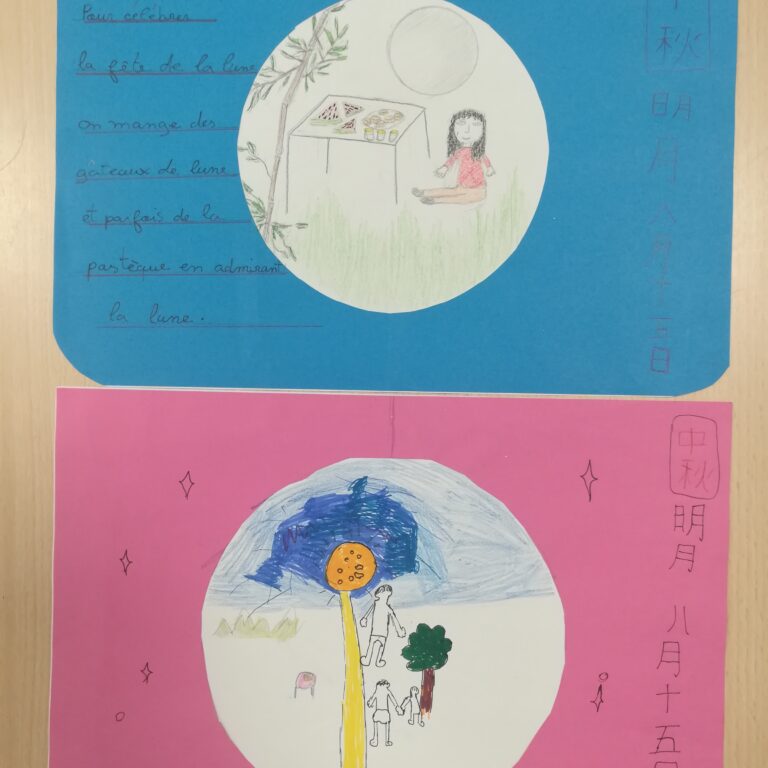 Pour célébrer
la fête de la lune
on mange des
gateaux de lune
et parfois de la
pastèque en admirant
la lune.
中秋
明月八月十五日
中秋
明月八月十五日